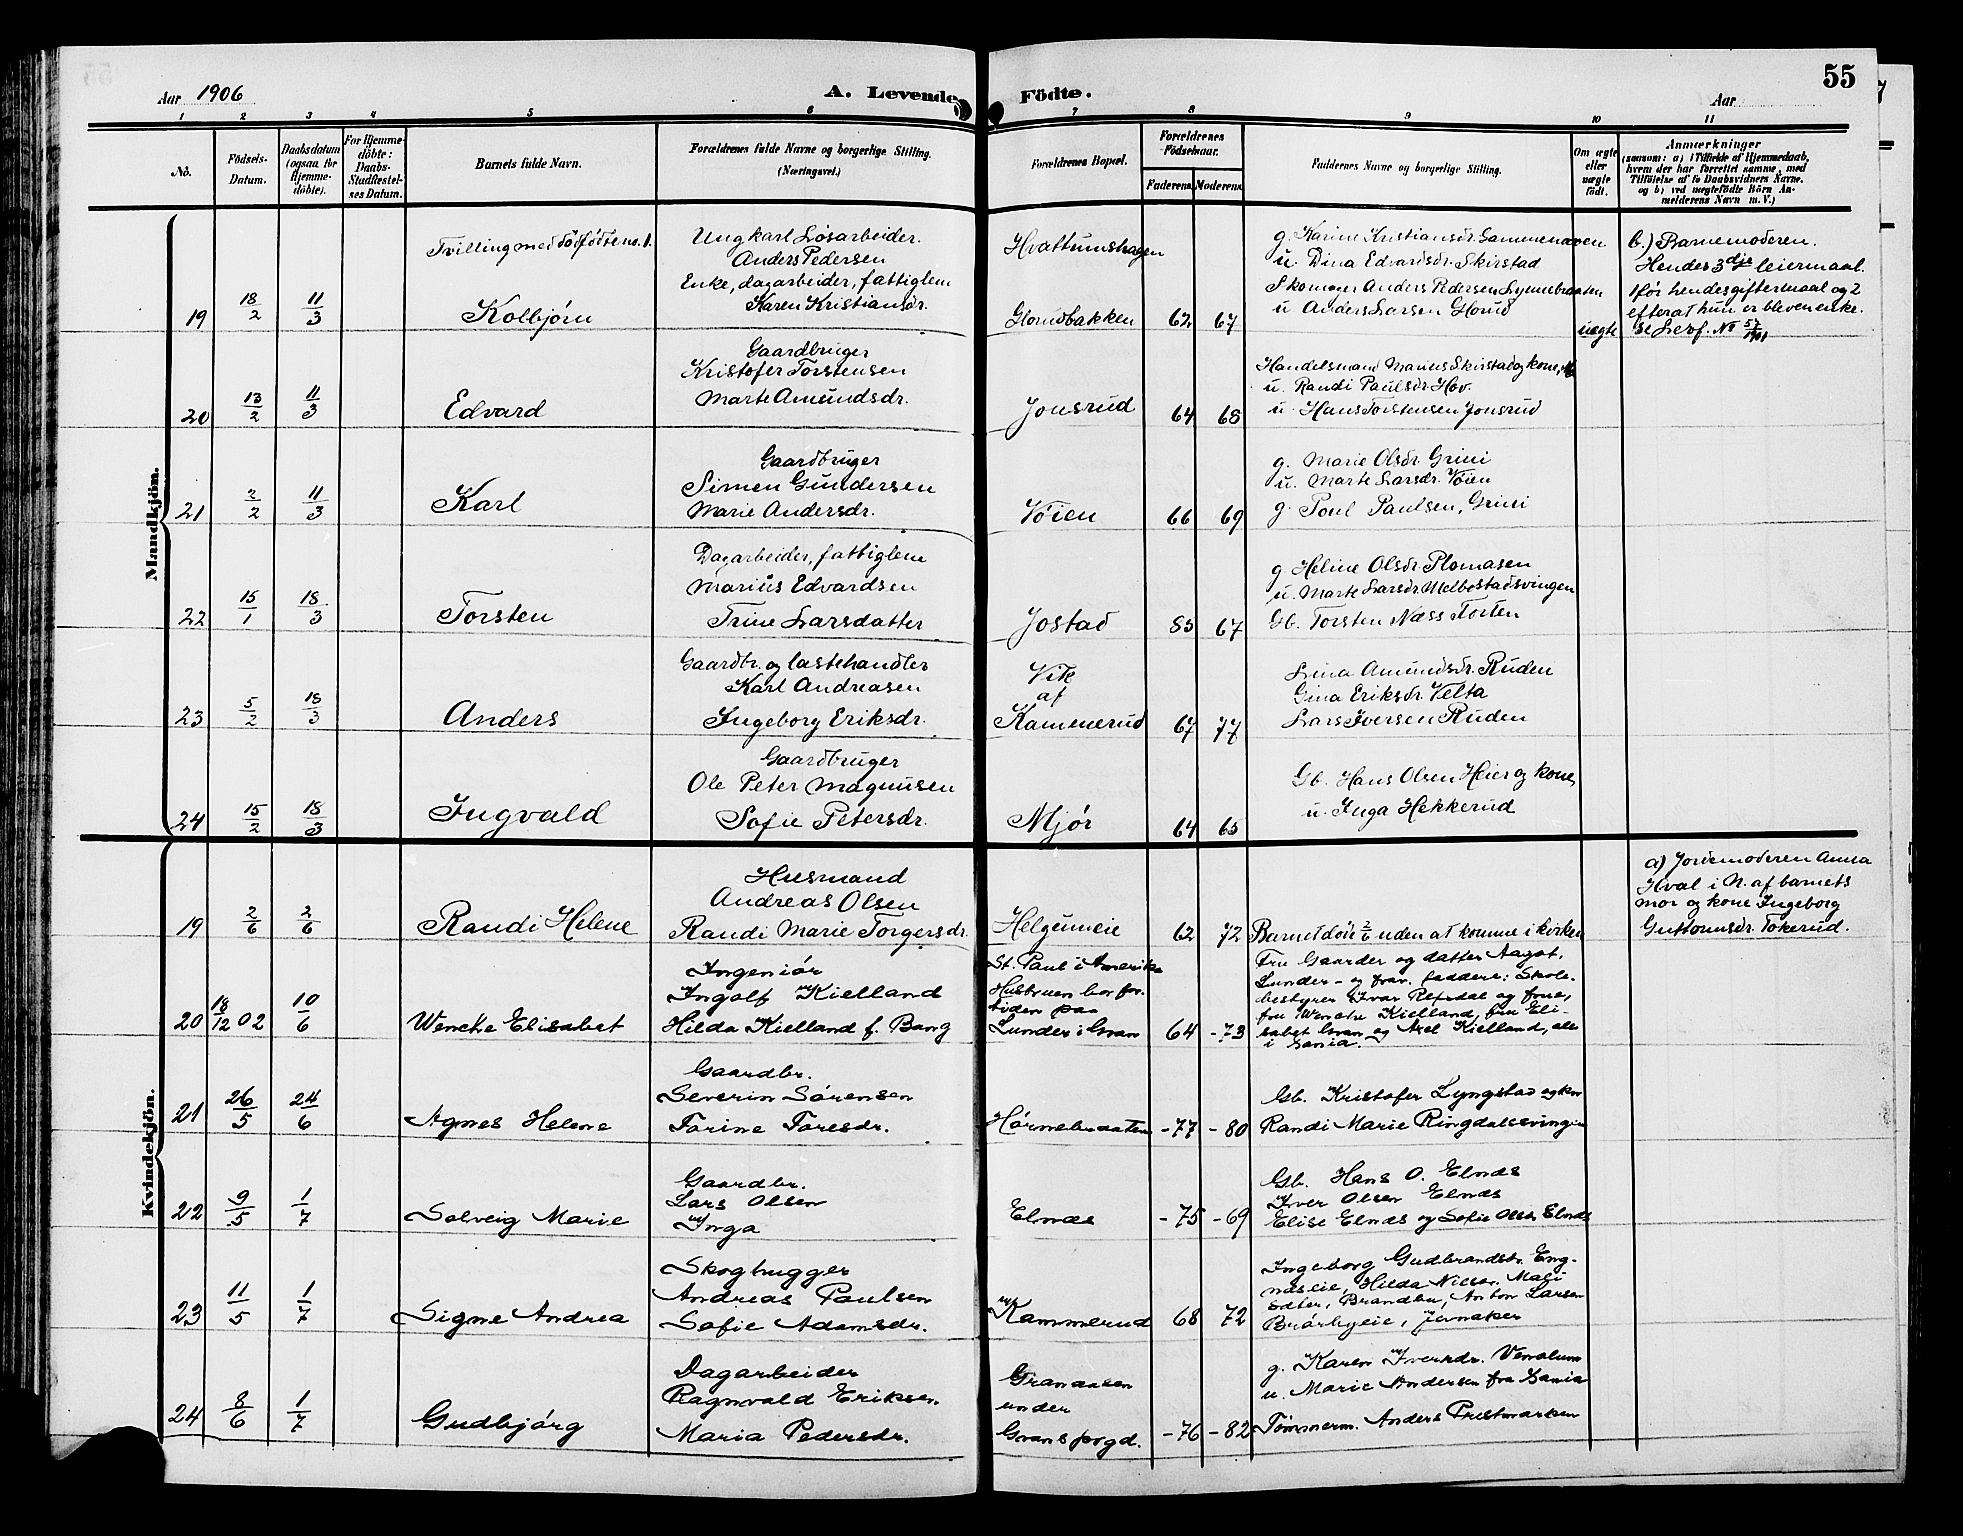 55
Aar 1906
A. Levende Födte.
Aar
1 2 3 4 5 6 7 8 9 10 11
No.
Födsels-Datum.
Daabsdatum (ogsaa for Hjemme-döbte).
For Hjemme-döbte: Daabs-Stadfæstel-ses Datum.
Barnets fulde Navn.
Forældrenes fulde Navne og borgerlige Stilling. (Næringsvei.)
Forældrenes Bopæl.
Forældrenes Födselsaar.
Faderens. Moderens.
Faddernes Navne og borgerlige Stilling.
Om ægte eller uægte födt.
Anmærkninger
(saasom: a) i Tilfælde af Hjemmedaab, hvem der har forrettet samme, med Tilföielse af to Daabsvidners Navne, og b) ved uægtefödte Börn Anmelderens Navn m. V.)
Mandkjön.
Tvilling med dödfödte no. 1.
Ungkarl Løsarbeider.
Anders Pedersen
Enke, dagarbeider, fattiglem
19 18/2 11/3 Kolbjørn Karen Kristiansdr.
Hvattumshagen
Glorudbakken 62 67
g. Karine Kristiansdr. Sammenaven
u. Dina Edvardsdr. Skirstad
Skomager Anders Pedersen Lynnebraaten
u Anders Larsen Horud
uægte
b.) Barnemoderen.
Hendes 3dje leiermaal.
1 før hendes giftermaal og 2
efterat hun er bleven enke.
se Levf. No 57/1901
Gaardbruger
Kristofer Torstensen
20 13/2 11/3 Edvard Marte Amundsdr.
Jonsrud 64 68
Handelsmand Marius Skirstad og kone,
u. Randi Paulsdr. Hov.
u. Hans Torstensen Jonsrud
Gaardbruger
Simen Gundersen
21 2/2 11/3 Karl Marie Andersdr.
Vøien 66 69
g. Marie Olsdr. Grini
u. Marte Larsdr. Vøien
g. Poul Paulsen, Grini
Dagarbeider, fattiglem
Marius Edvardsen
22 15/1 18/3 Torsten Trine Larsdatter
Jostad 85 67
g. Heline Olsdr. Plomasen
u. Marte Larsdr. Melbostadsvingen
Gb. Torsten Næss Torten
Gaardbr. og lastehandler
Karl Andreasen
23 5/2 18/3 Anders Ingeborg Eriksdr.
Vik
af
Kammerud 67 77
Lina Amundsdr. Ruden
Gina Eriksdr. Velta
Lars Iversen Ruden
Gaardbruger
Ole Peter Magnusen
24 15/2 18/3 Ingvald Sofie Petersdr.
Mjør 64 65
Gb. Hans Olsen Heier og kone,
u. Inga Hekkerud
Kvindekjön.
Husmand
Andreas Olsen
19 2/6 2/6 Randi Helene Randi Marie Torgersdr.
Helgumeie 62 72 Barnet döde 2/6 uden at komme i kirken
a) Jordemoderen Anna
Hval i N. af barnets
mor og kone Ingeborg
Guttormsdr. Tokerud.
Ingeniör
Ingolf Kielland
20 18/12 02 10/6 Wencke Elisabet Hilda Kielland f. Bang
St. Paul i Amerika
Hustruen bor for-
tiden paa
Lunder i Gran 64 -73
Fru Gaarder og datter Aagot,
Lunder - og frav. faddere: Skole-
bestyrer Ivar Refsdal og frue,
fru Wencke Kielland, fru Eli-
sabet Gran og Axel Kielland, alle
i Xania.
Gaardbr.
Severin Sörensen
21 26/5 24/6 Agnes Helene Torine Toresdr.
Hörnebraaten -77 -80
Gb. Kristofer Lyngstad og kon
Randi Marie Ringdalssvingen
Gaardbr.
Lars Olsen
22 9/5 1/7 Solveig Marie Inga
Elnæs -75 -69
Gb. Hans O. Elnæs
Iver Olsen Elnæs
Elise Elnæs og Sofie Olsen Elnæs
Skoghugger
Andreas Paulsen
23 11/5 1/7 Signe Andrea Sofie Adamsdr.
Kammerud 68 72
Ingeborg Gudbrandsdr. Eng-
næseie, Hilda Nilssr. Mali
sæter, Brandbu, Anton Larsen
Brörbyeie, Jevnaker
Dagarbeider
Ragnvald Eriksen
24 8/6 1/7 Gudbjörg Maria Pedersdr.
Granaasen
under
Grans prgd. -76 -82
g. Karen Iversdr. Venolum
u. Marie Andersen fra Xania
Tömmerm. Anders Prestmarken